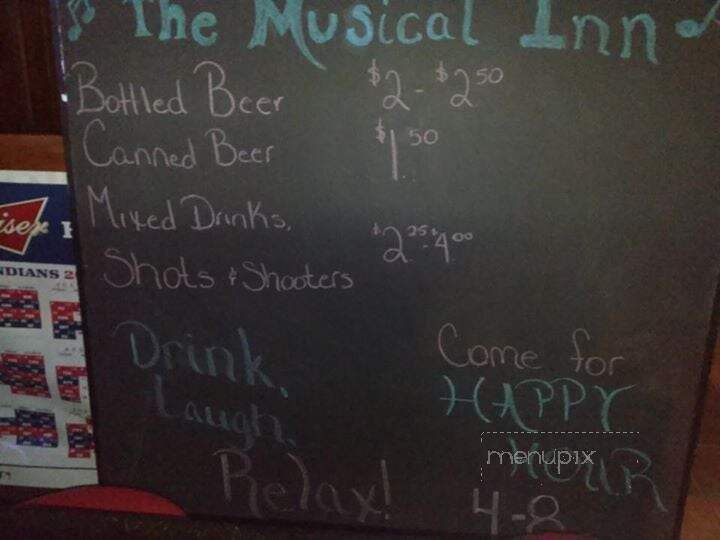 The Musical Inn
Bottled Beer $2 - $2 50
Canned Beer $1 50
Mixed Drinks,
Shots & Shooters $2 25 - $4 00
Drink,
Laugh,
Relax!
Come for
HAPPY
HOUR
4-8
menupix
NDIANS 2